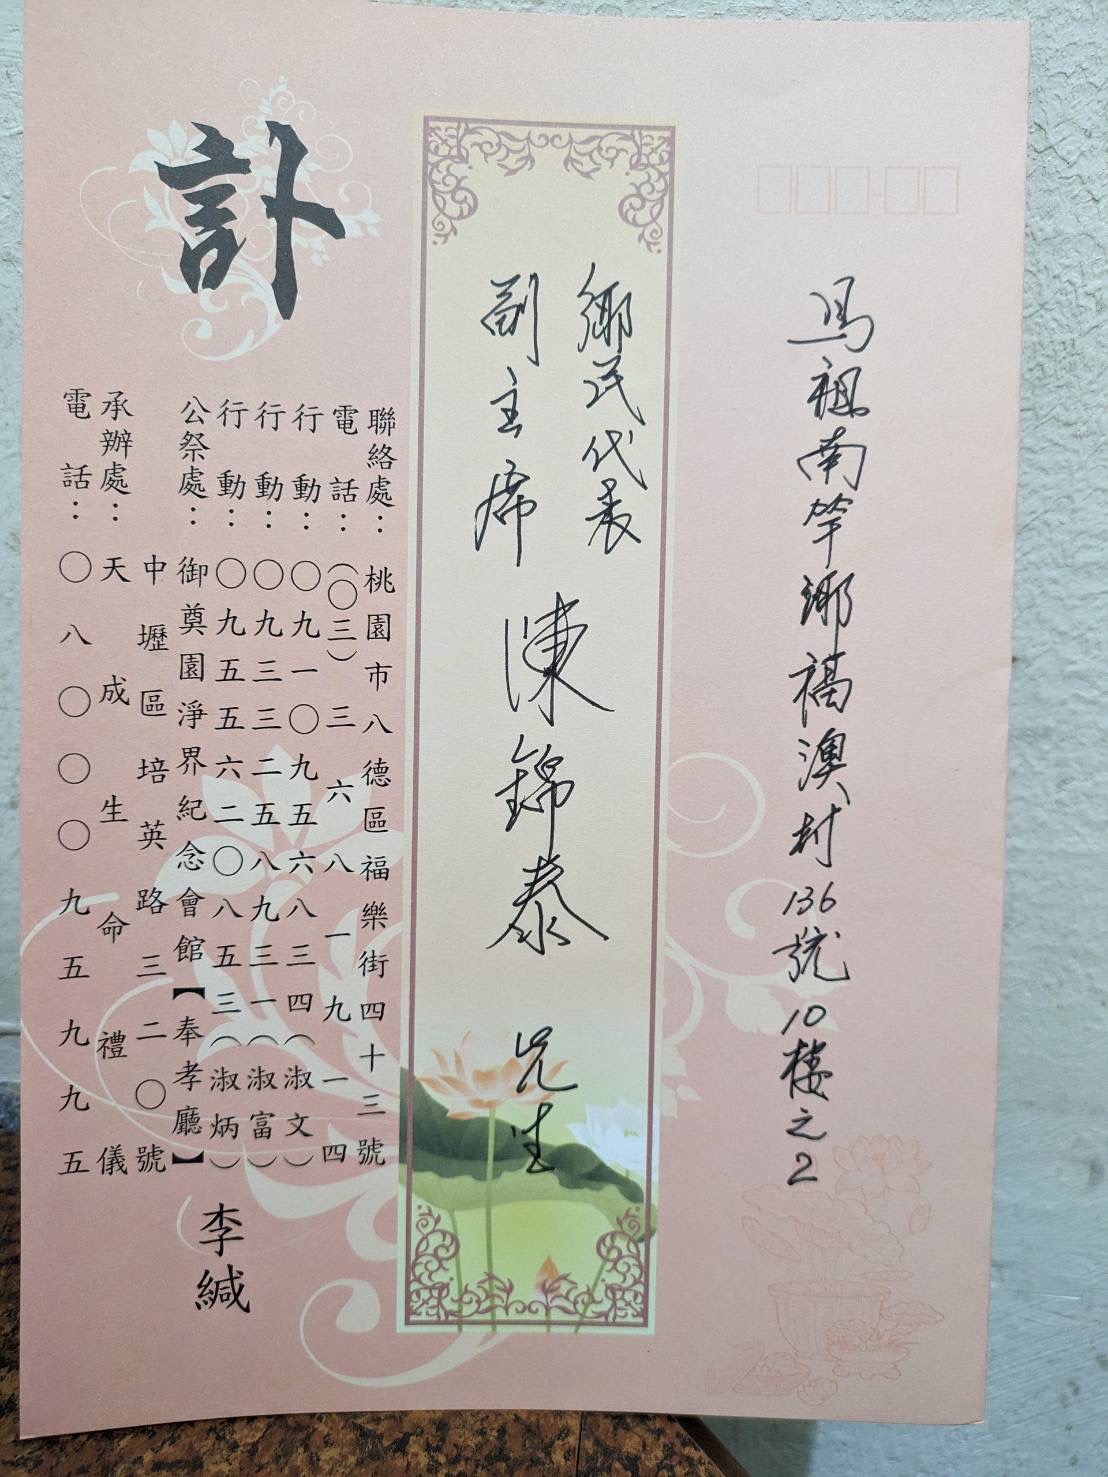 馬祖南竿鄉福澳村136號10樓之2
鄉民代表
副主席 陳錦泰 先生
訃
聯絡處：桃園市八德區福樂街四十三號
電話：（〇三）三六八一九一四
行動：〇九一〇九五六八三四（淑文）
行動：〇九三三二五八九三一（淑富）
行動：〇九五五六二〇八五三（淑炳）
公祭處：御奠園淨界紀念會館【奉孝廳】
中壢區培英路三二〇號
承辦處：天成生命禮儀
電話：〇八〇〇〇九五九九五
李緘